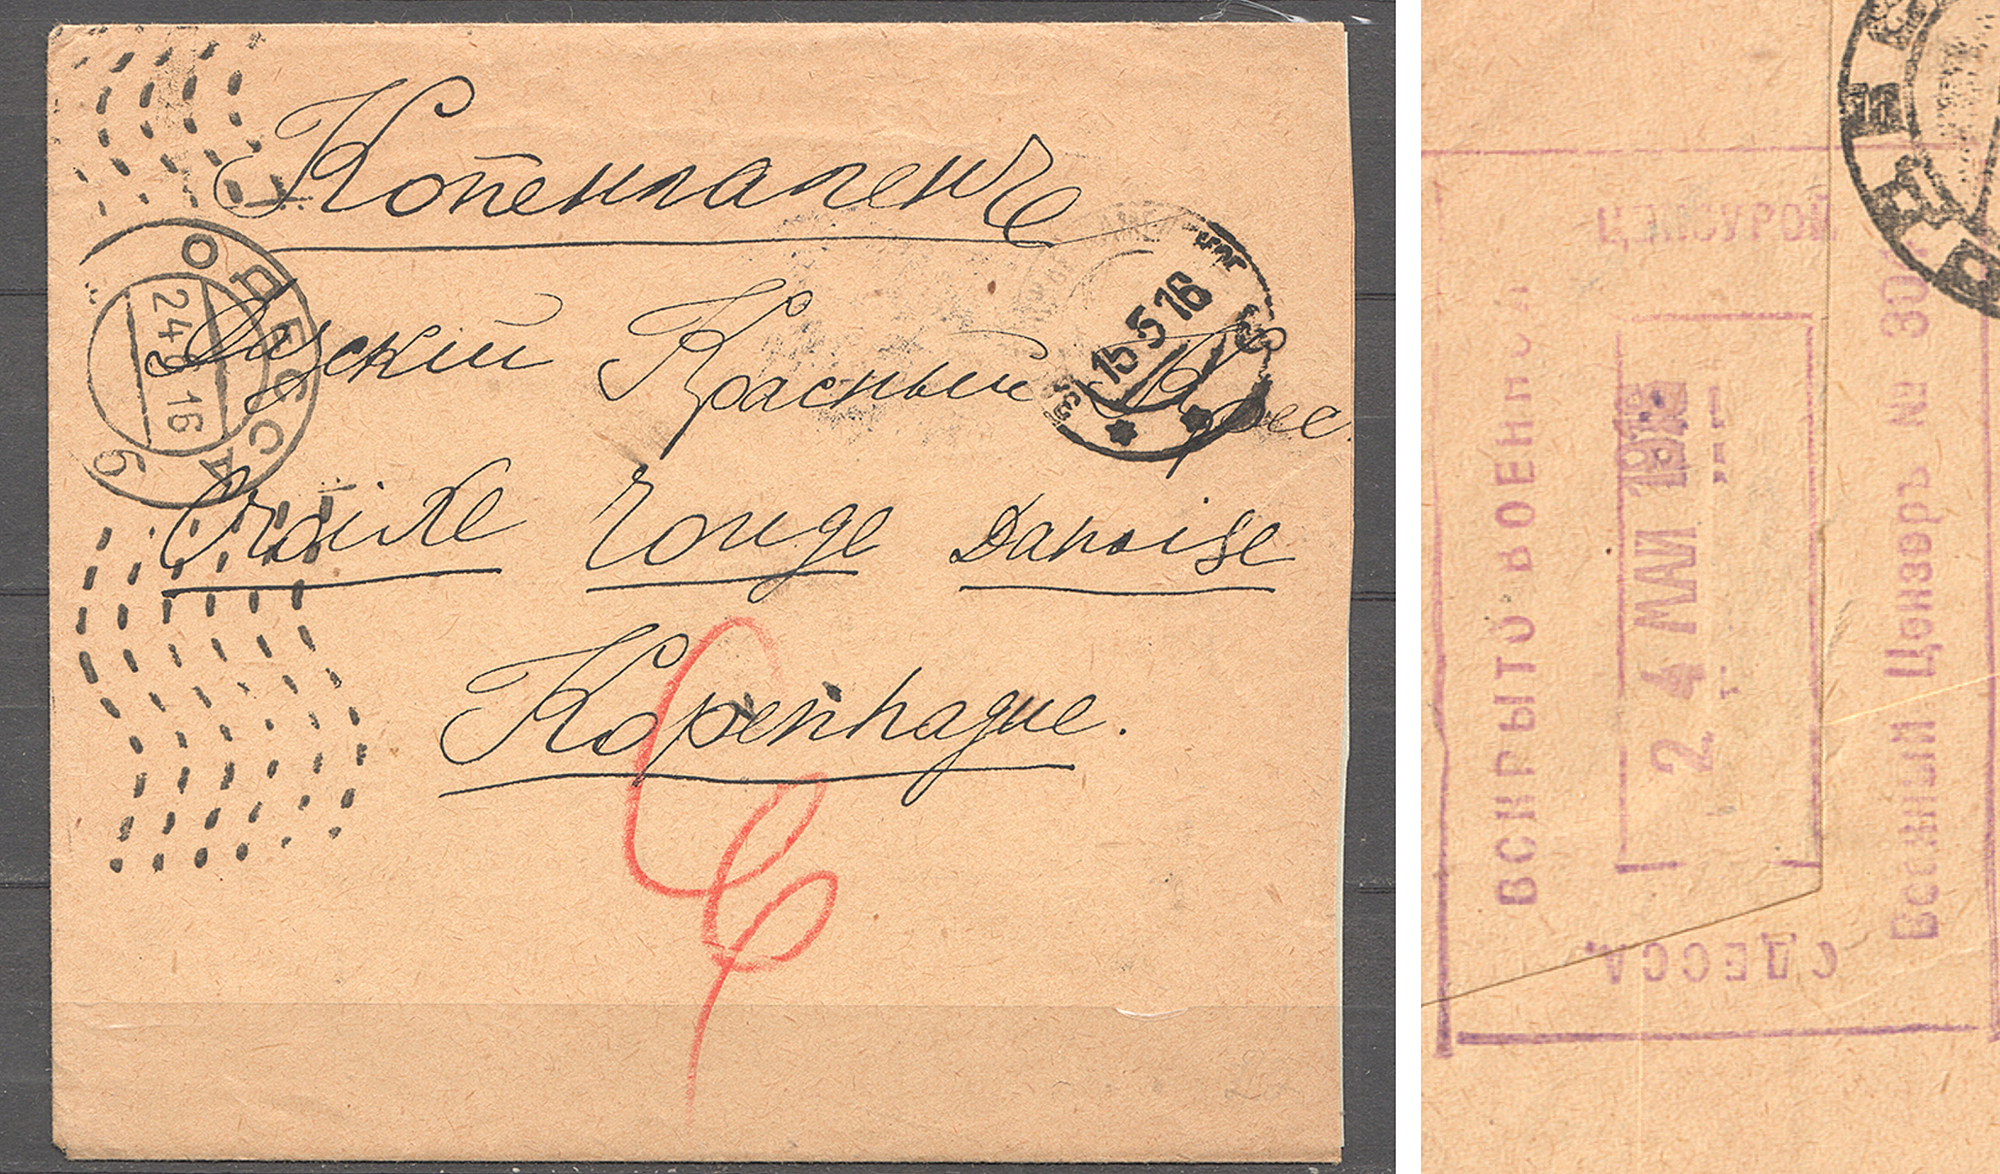 Копенгагенъ
Датскій Красный Крес.
Croixe rouge Danoise
Kopenhague.
ОДЕССА
24 9 16
6
15 5 16
ВСКРЫТО ВОЕННОЙ
ЦЕНЗУРОЙ
24 МАЙ 1916
Военный Цензоръ № 30
ОДЕССА